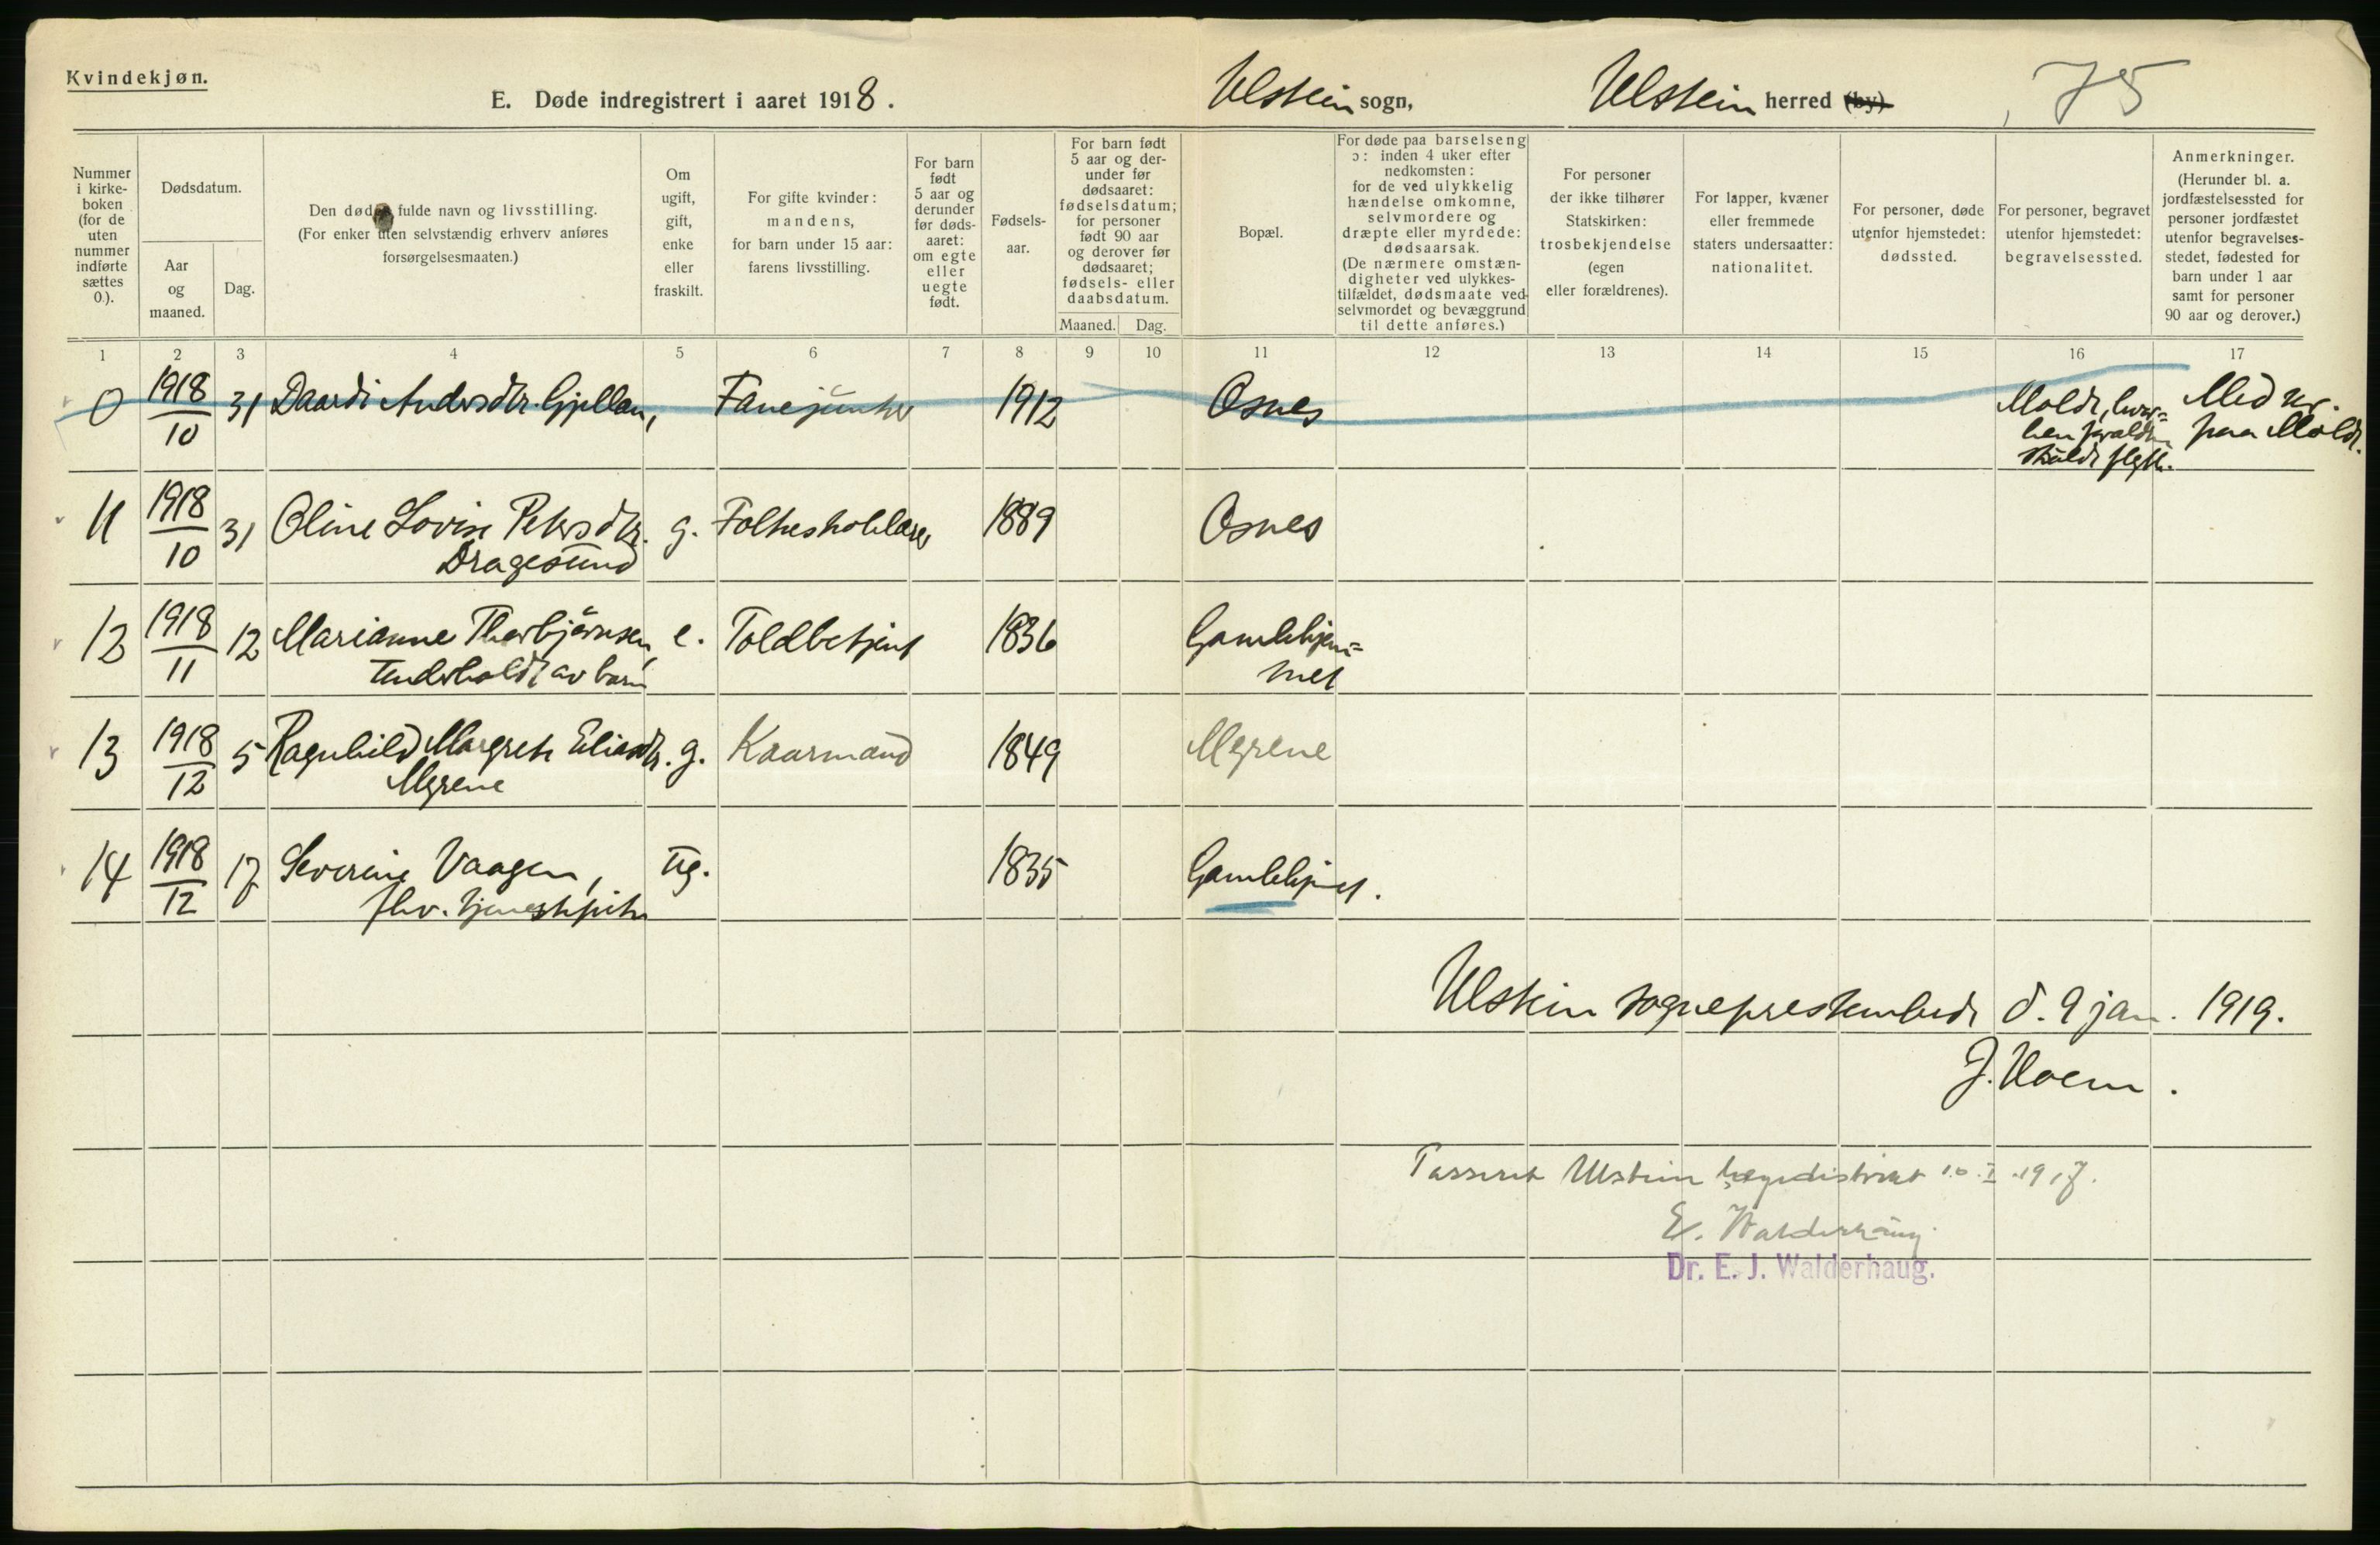 Kvindekjøn.
E. Døde indregistrert i aaret 1918.
Ulstein sogn,
Ulstein herred (by)
75
Nummer
i kirke-
boken
(for de
uten
nummer
indførte
sættes
0.).
Dødsdatum.
Aar
og
maaned.
Dag.
Den dødes fulde navn og livsstilling.
(For enker uten selvstændig erhverv anføres
forsørgelsesmaaten.)
Om
ugift,
gift,
enke
eller
fraskilt.
For gifte kvinder:
mandens,
for barn under 15 aar:
farens livsstilling.
For barn
født
5 aar og
derunder
før døds-
aaret:
om egte
eller
uegte
født.
Fødsels-
aar.
For barn født
5 aar og der-
under før
dødsaaret:
fødselsdatum;
for personer
født 90 aar
og derover før
dødsaaret;
fødsels- eller
daabsdatum.
Maaned.
Dag.
Bopæl.
For døde paa barselseng
ɔ: inden 4 uker efter
nedkomsten:
for de ved ulykkelig
hændelse omkomne,
selvmordere og
dræpte eller myrdede:
dødsaarsak.
(De nærmere omstæn-
digheter ved ulykkes-
tilfældet, dødsmaate ved
selvmordet og bevæggrund
til dette anføres.)
For personer
der ikke tilhører
Statskirken:
trosbekjendelse
(egen
eller forældrenes).
For lapper, kvæner
eller fremmede
staters undersaatter:
nationalitet.
For personer, døde
utenfor hjemstedet:
dødssted.
For personer, begravet
utenfor hjemstedet:
begravelsessted.
Anmerkninger.
(Herunder bl. a.
jordfæstelsessted for
personer jordfæstet
utenfor begravelses-
stedet, fødested for
barn under 1 aar
samt for personer
90 aar og derover.)
1 2 3 4 5 6 7 8 9 10 11 12 13 14 15 16 17
0 1918/10 31 Daardi Andersdtr. Gjellan, Fanejunker 1912 Osnes
Molde, hvor-
hen forældrene
skulde flytte.
Med nr.
paa Molde.
11 1918/10 31 Oline Lovise Petersdtr. g. Folkeskolelærer 1889 Osnes
Dragesund
12 1918/11 12 Marianne Thorbjørnsen, e. Toldbetjent 1836 Gamlehjem-
met
underholdt av barn
13 1918/12 5 Ragnhild Margrete Eliasdtr. g. Kaarmand 1849 Myrene
Myrene
14 1918/12 17 Severine Vaagen, ug. 1835 Gamlehjmet.
fhv. tjenestepike
Ulstein sogneprestembede d. 9 jan. 1919.
J. Hoem.
Passert Ulstein lægedistrikt 10.I.1917.
E. Walderhaug.
Dr. E. J. Walderhaug.